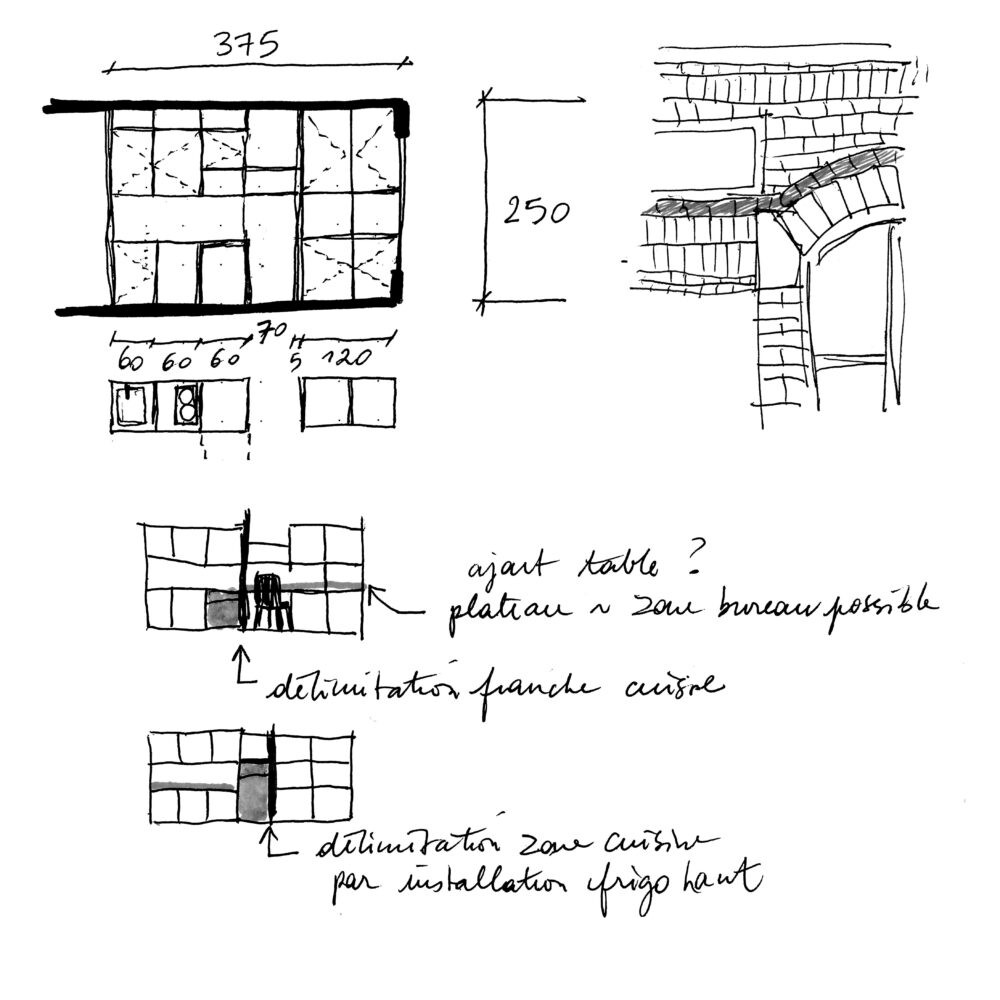 375
250
70
60 60 60 5 120
ajout table ?
plateau ~ zone bureau possible
délimitation franche cuisine
délimitation zone cuisine
par installation frigo haut